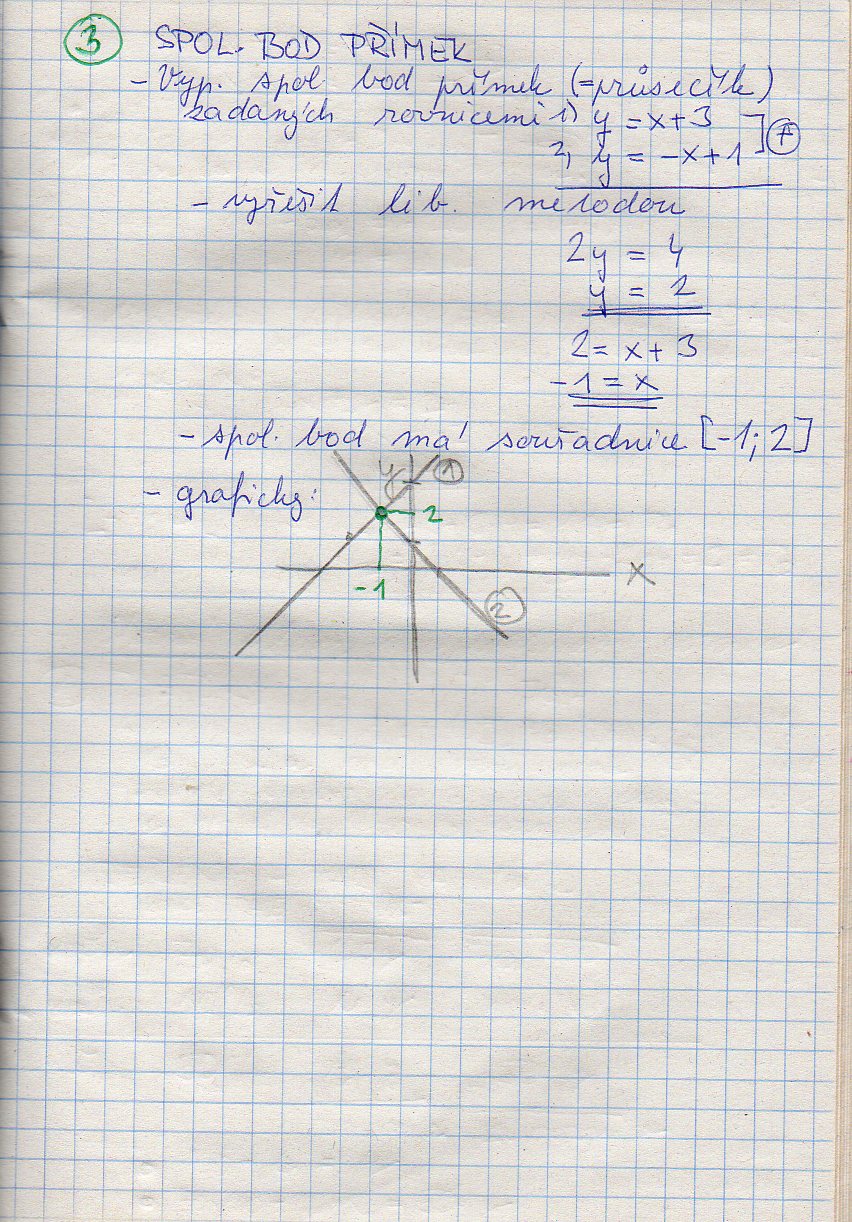 3 SPOL. BOD PŘÍMEK
- Vyp. spol bod přímek (=průsečík)
zadaných rovnicemi 1) y = x + 3
2, y = -x + 1 ] +
- vyřešit lib. metodou
2y = 4
y = 2
2 = x + 3
-1 = x
- spol. bod má souřadnice [-1; 2]
- graficky:
y 1
2
x
-1
2